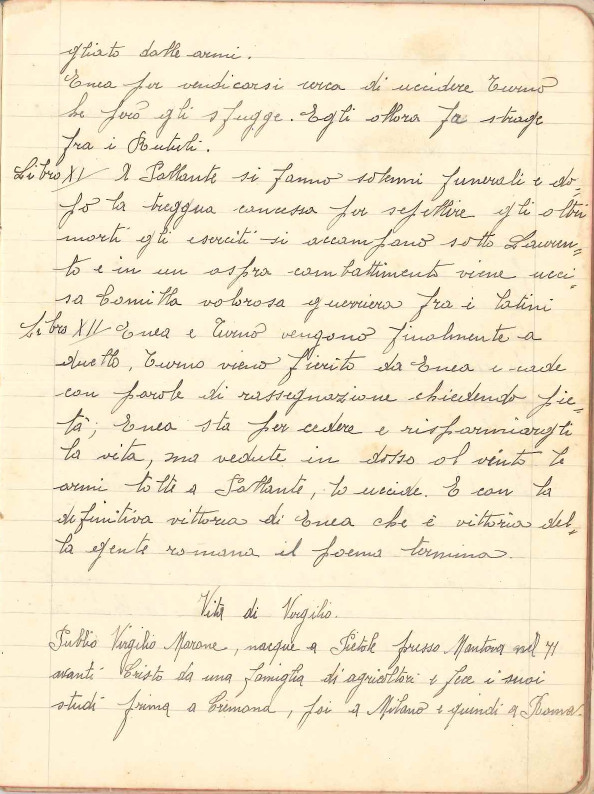 gliato dalle armi.
Enea per vendicarsi cerca di uccidere Turno
che però gli sfugge. Egli allora fa strage
fra i Rutuli.
Libro XI/ A Pallante si fanno solenni funerali e do-
po la treggua concessa per sepellire gli altri
morti gli eserciti si accampano sotto Lauren-
to e in un aspra combattimento viene ucci-
sa Camilla valorosa guerriera fra i latini
Libro XII/ Enea e Turno vengono finalmente a
duello, Turno viene fierito da Enea e cade
con parole di rassegnazione chiedendo pie-
tà; Enea sta per cedere e risparmiargli
la vita, ma vedute in dosso al vinto le
armi tolte a Pallante, lo uccide. E con la
definitiva vittoria di Enea che è vittoria del-
la gente romana il poema termina.
Vita di Virgilio.
Publio Virgilio Marone, nacque a Pietole presso Mantova nel 71
avanti Cristo da una famiglia di agricoltori e fece i suoi
studi prima a Cremona, poi a Milano e quindi a Roma.